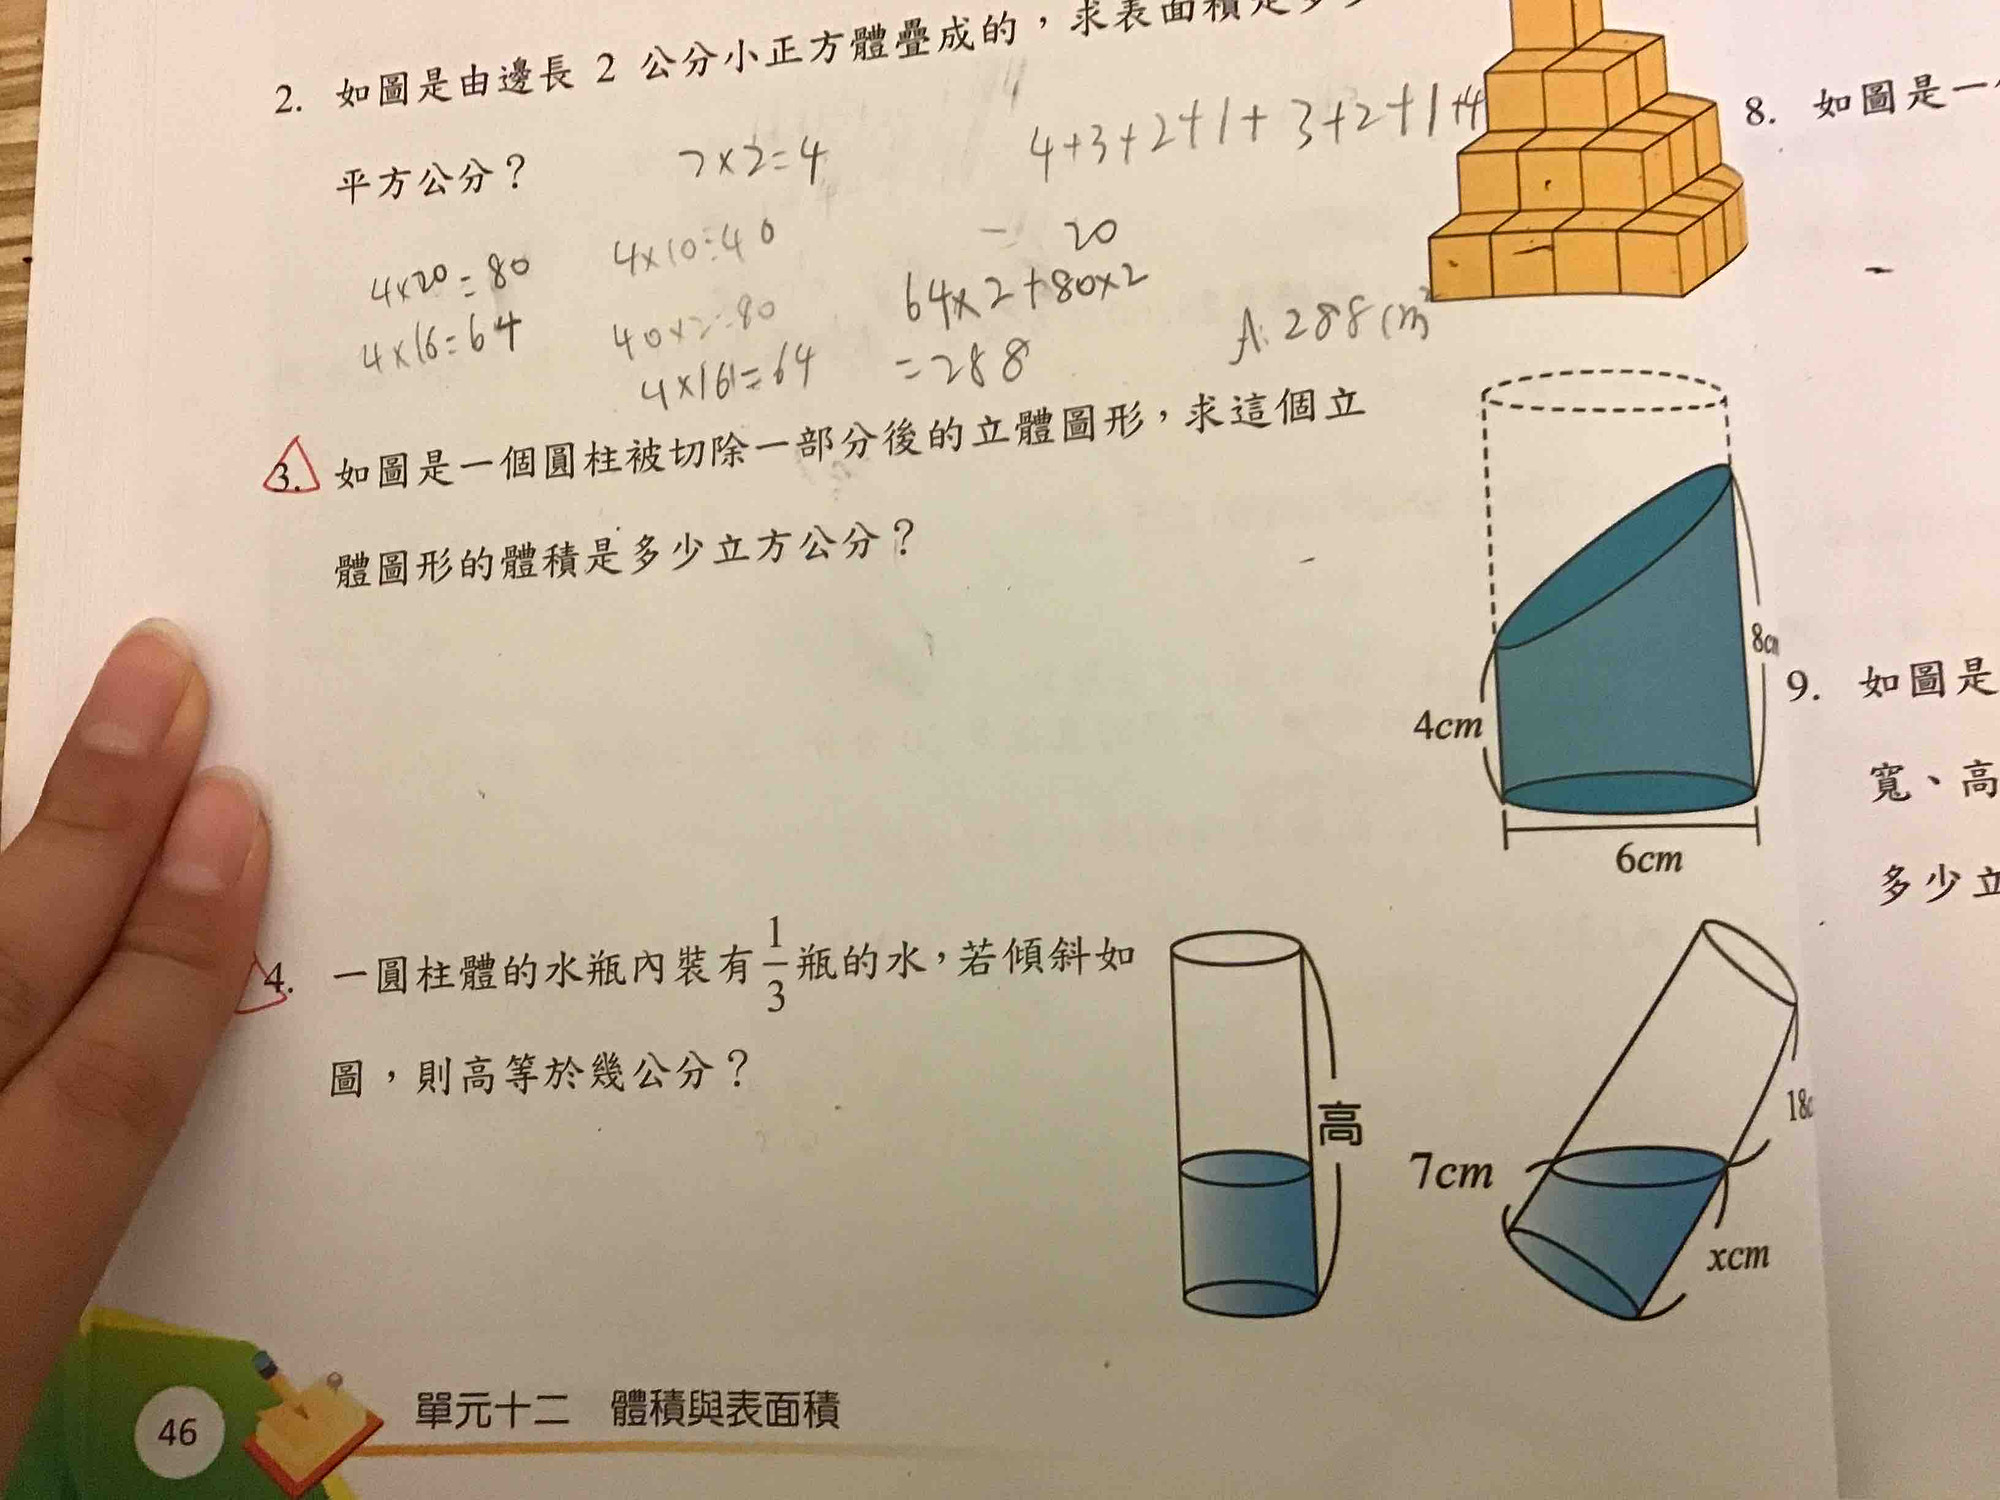 2. 如圖是由邊長 2 公分小正方體疊成的，求表面積是多
平方公分？
2×2=4
4+3+2+1+3+2+1+4
= 20
4×20=80
4×10=40
4×16=64
40×2=80
4×16=64
64×2+80×2
=288
A:288cm²
3. 如圖是一個圓柱被切除一部分後的立體圖形，求這個立
體圖形的體積是多少立方公分？
4cm
8cm
6cm
4. 一圓柱體的水瓶內裝有1/3瓶的水，若傾斜如
圖，則高等於幾公分？
高
7cm
18c
xcm
46
單元十二 體積與表面積
8. 如圖是一
9. 如圖是
寬、高
多少立